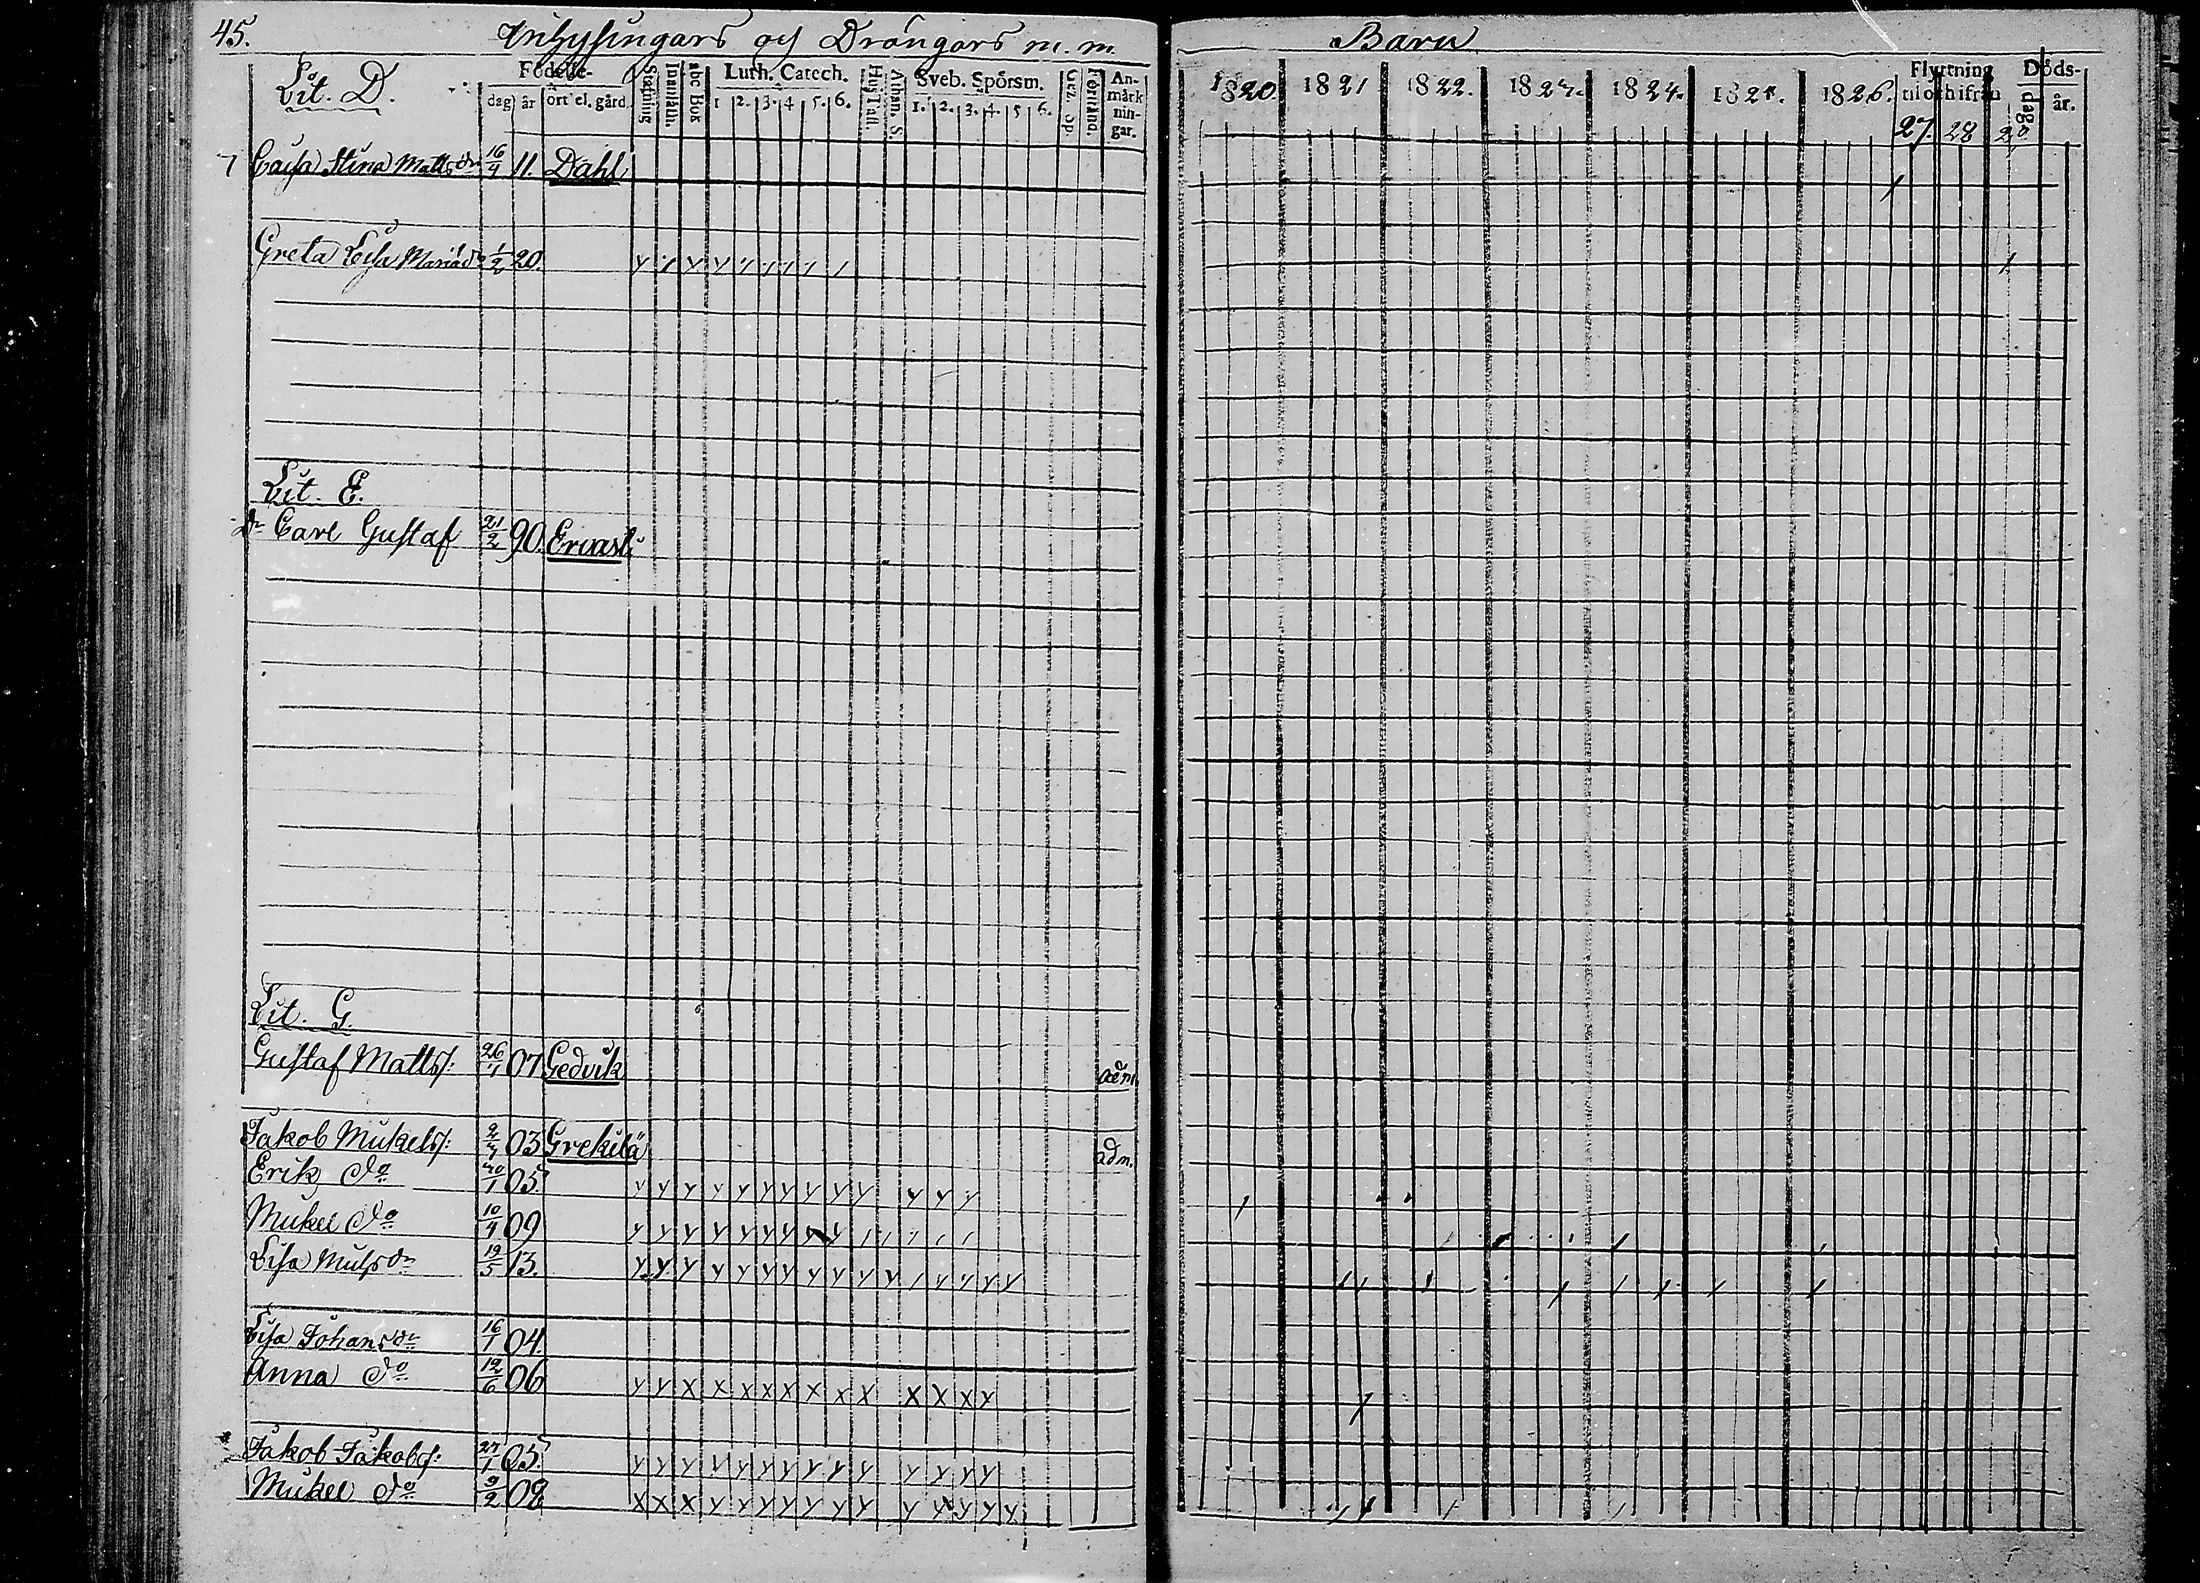 45. Inhysingars och Drängars m. m. Barn
Lit. D.
Födelse-
dag år ort el. gård.
Stafning Innanläsn. abc Bok
Luth. Catech.
1 2. 3. 4 5. 6.
Hus Tafl. Athan. S.
Sveb. Spörsm.
1. 2. 3. 4. 5 6.
Förstånd.
An-
märk
nin-
gar.
1820. 1821 1822. 1823. 1824. 1825. 1826.
Flyttning
til och ifrån
27. 28 29
Döds-
dag. år.
Cajsa Stina Mattsdr 16/4 11. Dahl
Greta Lisa Mariäd 1/2 20.
Lit. E.
Dr Carl Gustaf 21/2 90. Ervast
Lit. G.
Gustaf Matts: 26/1 07 Gedvik adm
Jakob Mickels: 03 Grekilä adm.
Erik do 30/1 05.
Mickel do 10/4 09
Lisa Micksdr 19/5 13.
Lisa Johansdr 16/1 04.
Anna do 19/6 06
Jakob Jakobs: 27/1 05.
Mickel do 9/2 08